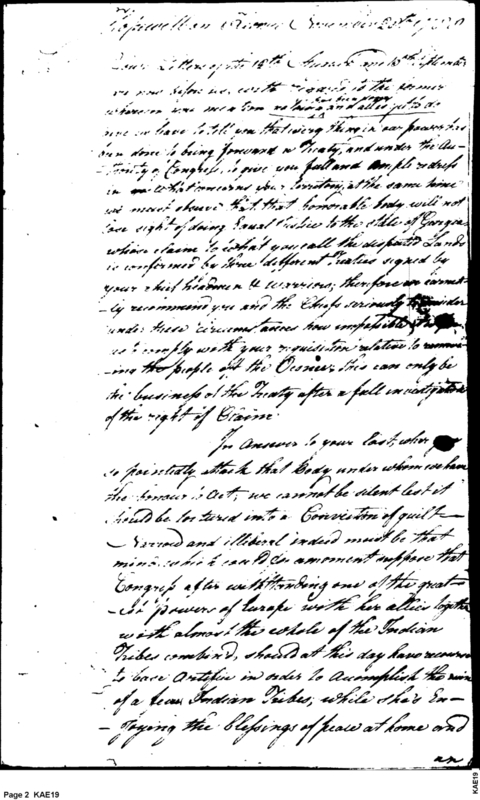 Hopewell on Keowee November 28th 1788
Your Letters of the 12th August and 13th September
are now before us, with regard to the former
wherein you mention nothing has been done and alledge to do
now we have to tell you that every thing in our power has
been done to bring forward a Treaty, and under the Au-
thority of Congress, to give you full and ample redress
in what concerns your Territory, at the same time
we must observe that that honorable body will not
lose sight of doing Equal Justice to the State of Georgia
whose claim to what you call the disputed Lands
is confirmed by three different Treaties signed by
your chief headmen & warriors; therefore we earnest-
ly recommend you and the Chiefs seriously to consider
under these circumstances how impossible
us to comply with your requisition relative to remov-
ing the people off the Oconee, this can only be
the business of the Treaty after a full investigation
of the right of Claim.
In Answer to your last, where you
so pointedly attack that Body under whom we have
the honour to Act, we cannot be silent lest it
should be tortured into a Conviction of guilt—
Narrow and illiberal indeed must be that
mind which could for a moment suppose that
Congress after withstanding one of the great-
est powers of Europe with her allies together
with almost the whole of the Indian
Tribes combin'd, should at this day have recourse
to base Artifice in order to Accomplish the ruin
of a few Indian Tribes, while she's En-
joying the blessings of peace at home and
an
Page 2 KAE19
KAE19